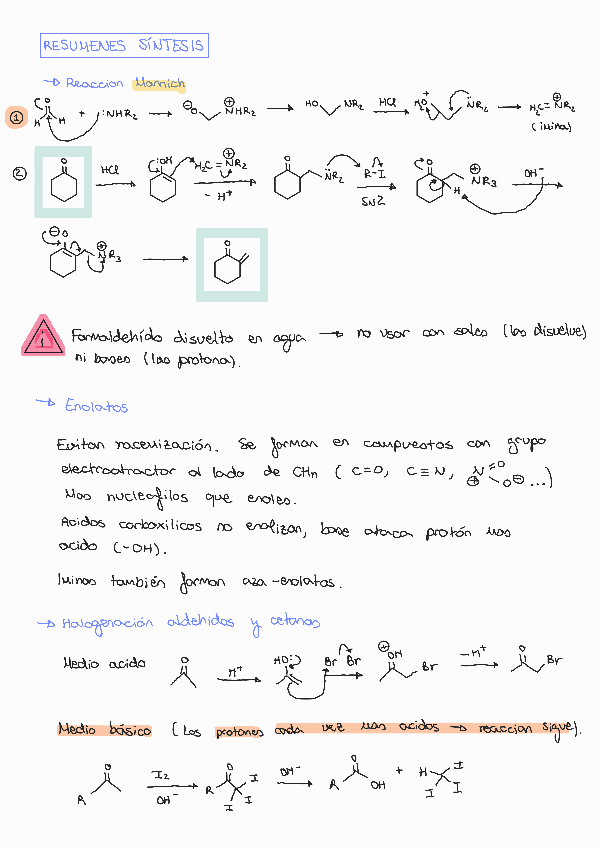 RESUMENES SÍNTESIS
→ Reaccion Mannich
① O H H + :NHR₂ → ⊖O ⊕ NHR₂ → HO NR₂ HCl HO⁺ NR₂ → H₂C=NR₂ ⊕
(imina)
② O HCl :OH H₂C=NR₂ ⊕ - H⁺ O NR₂ R-I SN2 O H ⊕ NR₃ OH⁻
⊖O ⊕ NR₃ → O
! Formaldehído disuelto en agua → no usar con sales (las disuelve)
ni bases (las protona).
→ Enolatos
Evitan racemización. Se forman en compuestos con grupo
electroatractor al lado de CHn (C=O, C≡N, N=O ⊕ O⊖ ...)
Mas nucleofilos que enoles.
Acidos carboxilicos no enolizan, base ataca protón mas
acido (-OH).
Iminas también forman aza-enolatos.
→ Halogenación aldehidos y cetonas
Medio acido O H⁺ HO: Br Br ⊕ OH Br -H⁺ O Br
Medio básico (Los protones cada vez mas acidos → reaccion sigue).
R O I₂ OH⁻ R O I I I OH⁻ R O OH + H I I I